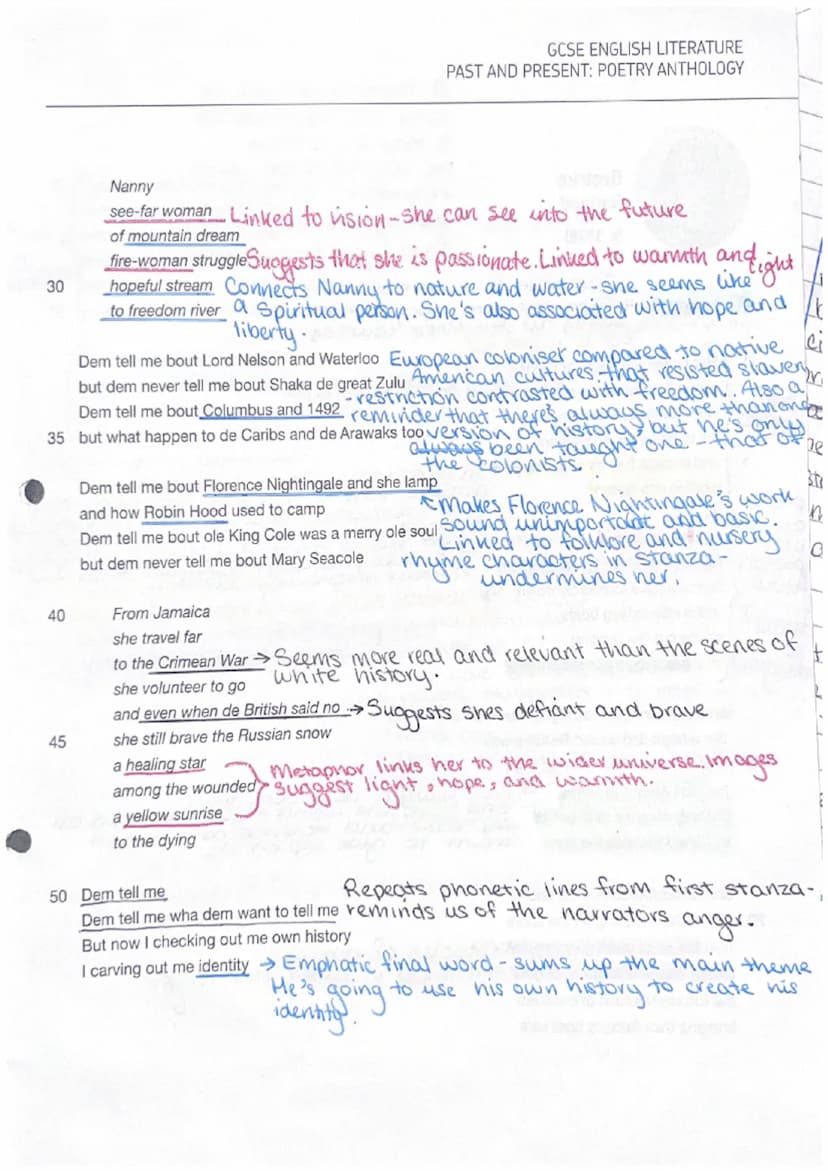 GCSE ENGLISH LITERATURE
PAST AND PRESENT: POETRY ANTHOLOGY
Nanny
see-far woman Linked to vision - she can see into the future
of mountain dream
fire-woman struggle Suggests that she is passionate. Linked to warmth and light
30 hopeful stream Connects Nanny to nature and water - she seems like
to freedom river a spiritual person. She's also associated with hope and
liberty.
Dem tell me bout Lord Nelson and Waterloo European coloniser compared to native
but dem never tell me bout Shaka de great Zulu American cultures that resisted slavery
Dem tell me bout Columbus and 1492 - restriction contrasted with freedom. Also a
reminder that there's always more than one
35 but what happen to de Caribs and de Arawaks too version of history, but he's only
always been taught one - that of
the colonists.
Dem tell me bout Florence Nightingale and she lamp
and how Robin Hood used to camp Makes Florence Nightingale's work
Dem tell me bout ole King Cole was a merry ole soul sound unimportant and basic.
Linked to folklore and nursery
but dem never tell me bout Mary Seacole rhyme characters in stanza -
undermines her.
40 From Jamaica
she travel far
to the Crimean War → Seems more real and relevant than the scenes of
she volunteer to go white history.
and even when de British said no → Suggests shes defiant and brave
45 she still brave the Russian snow
a healing star Metaphor links her to the wider universe. Images
among the wounded suggest light, hope, and warmth.
a yellow sunrise
to the dying
50 Dem tell me Repeats phonetic lines from first stanza -
Dem tell me wha dem want to tell me reminds us of the narrators anger.
But now I checking out me own history
I carving out me identity → Emphatic final word - sums up the main theme
He's going to use his own history to create his
identity.